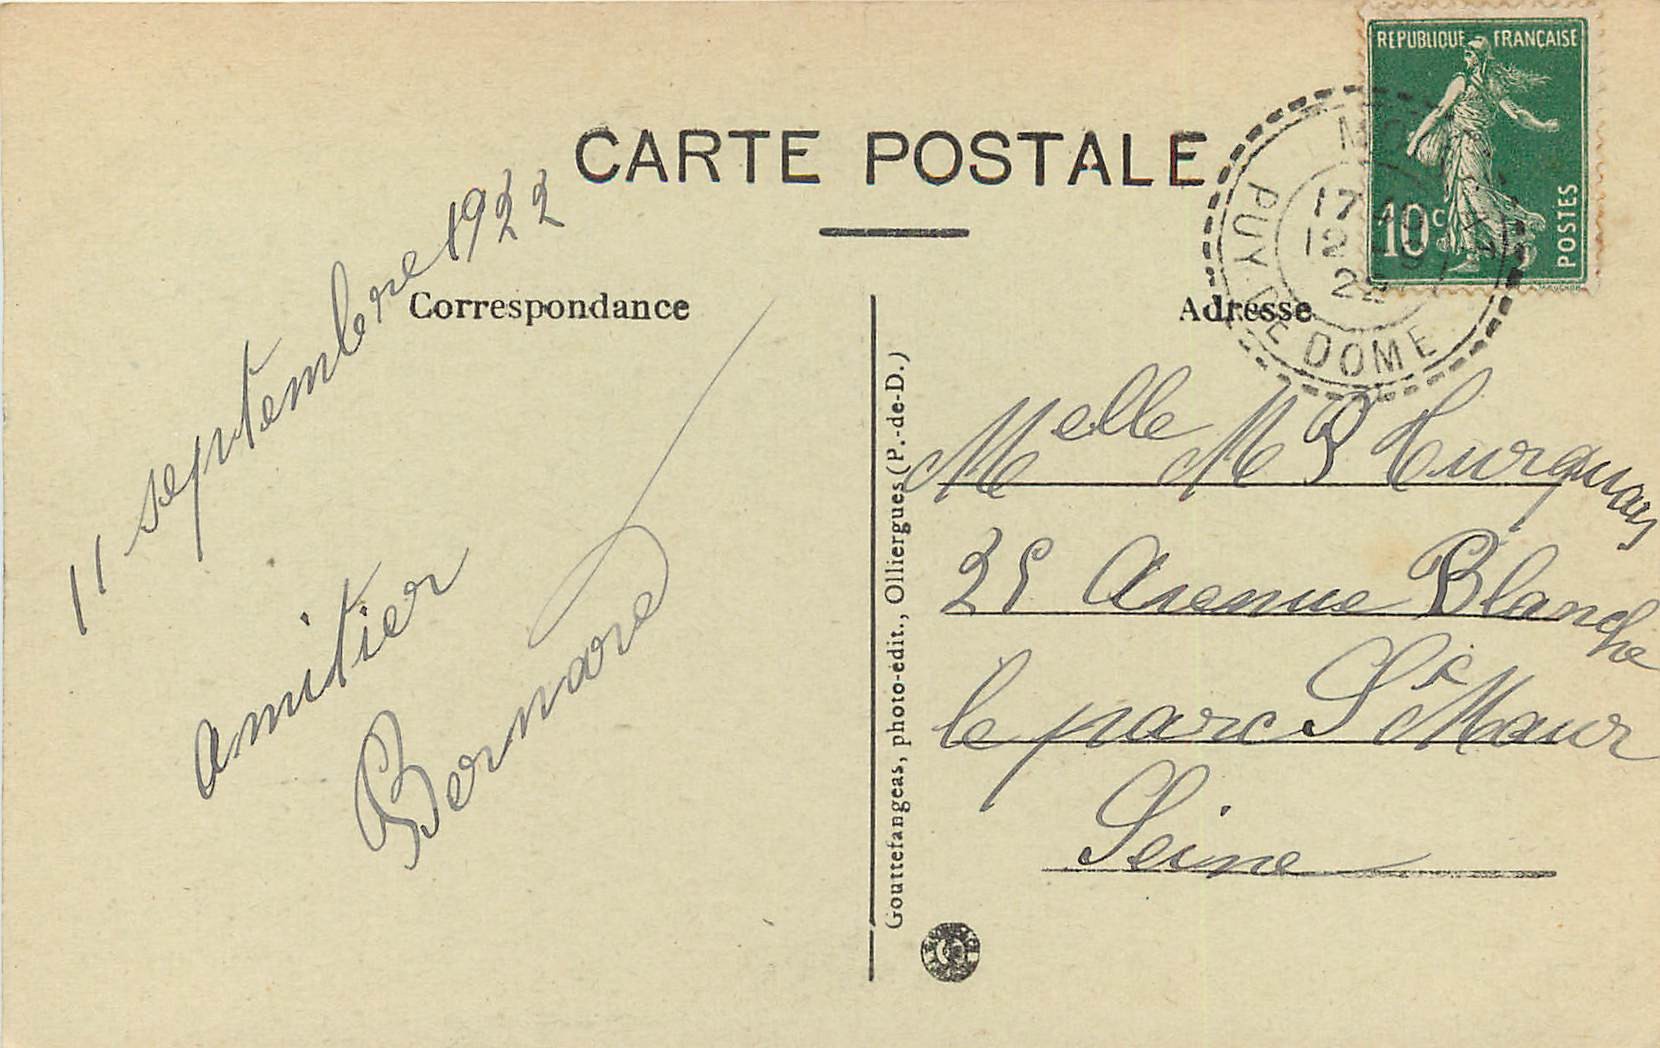 CARTE POSTALE
Correspondance
Adresse
11 septembre 1922
amitier
Bernard
REPUBLIQUE FRANÇAISE
10c
POSTES
17
12
22
PUY DE DOME
Melle M Turquay
25 Avenue Blanche
le parc St Maur
Seine
Gouttefangeas, photo-édit., Olliergues (P.-de-D.)